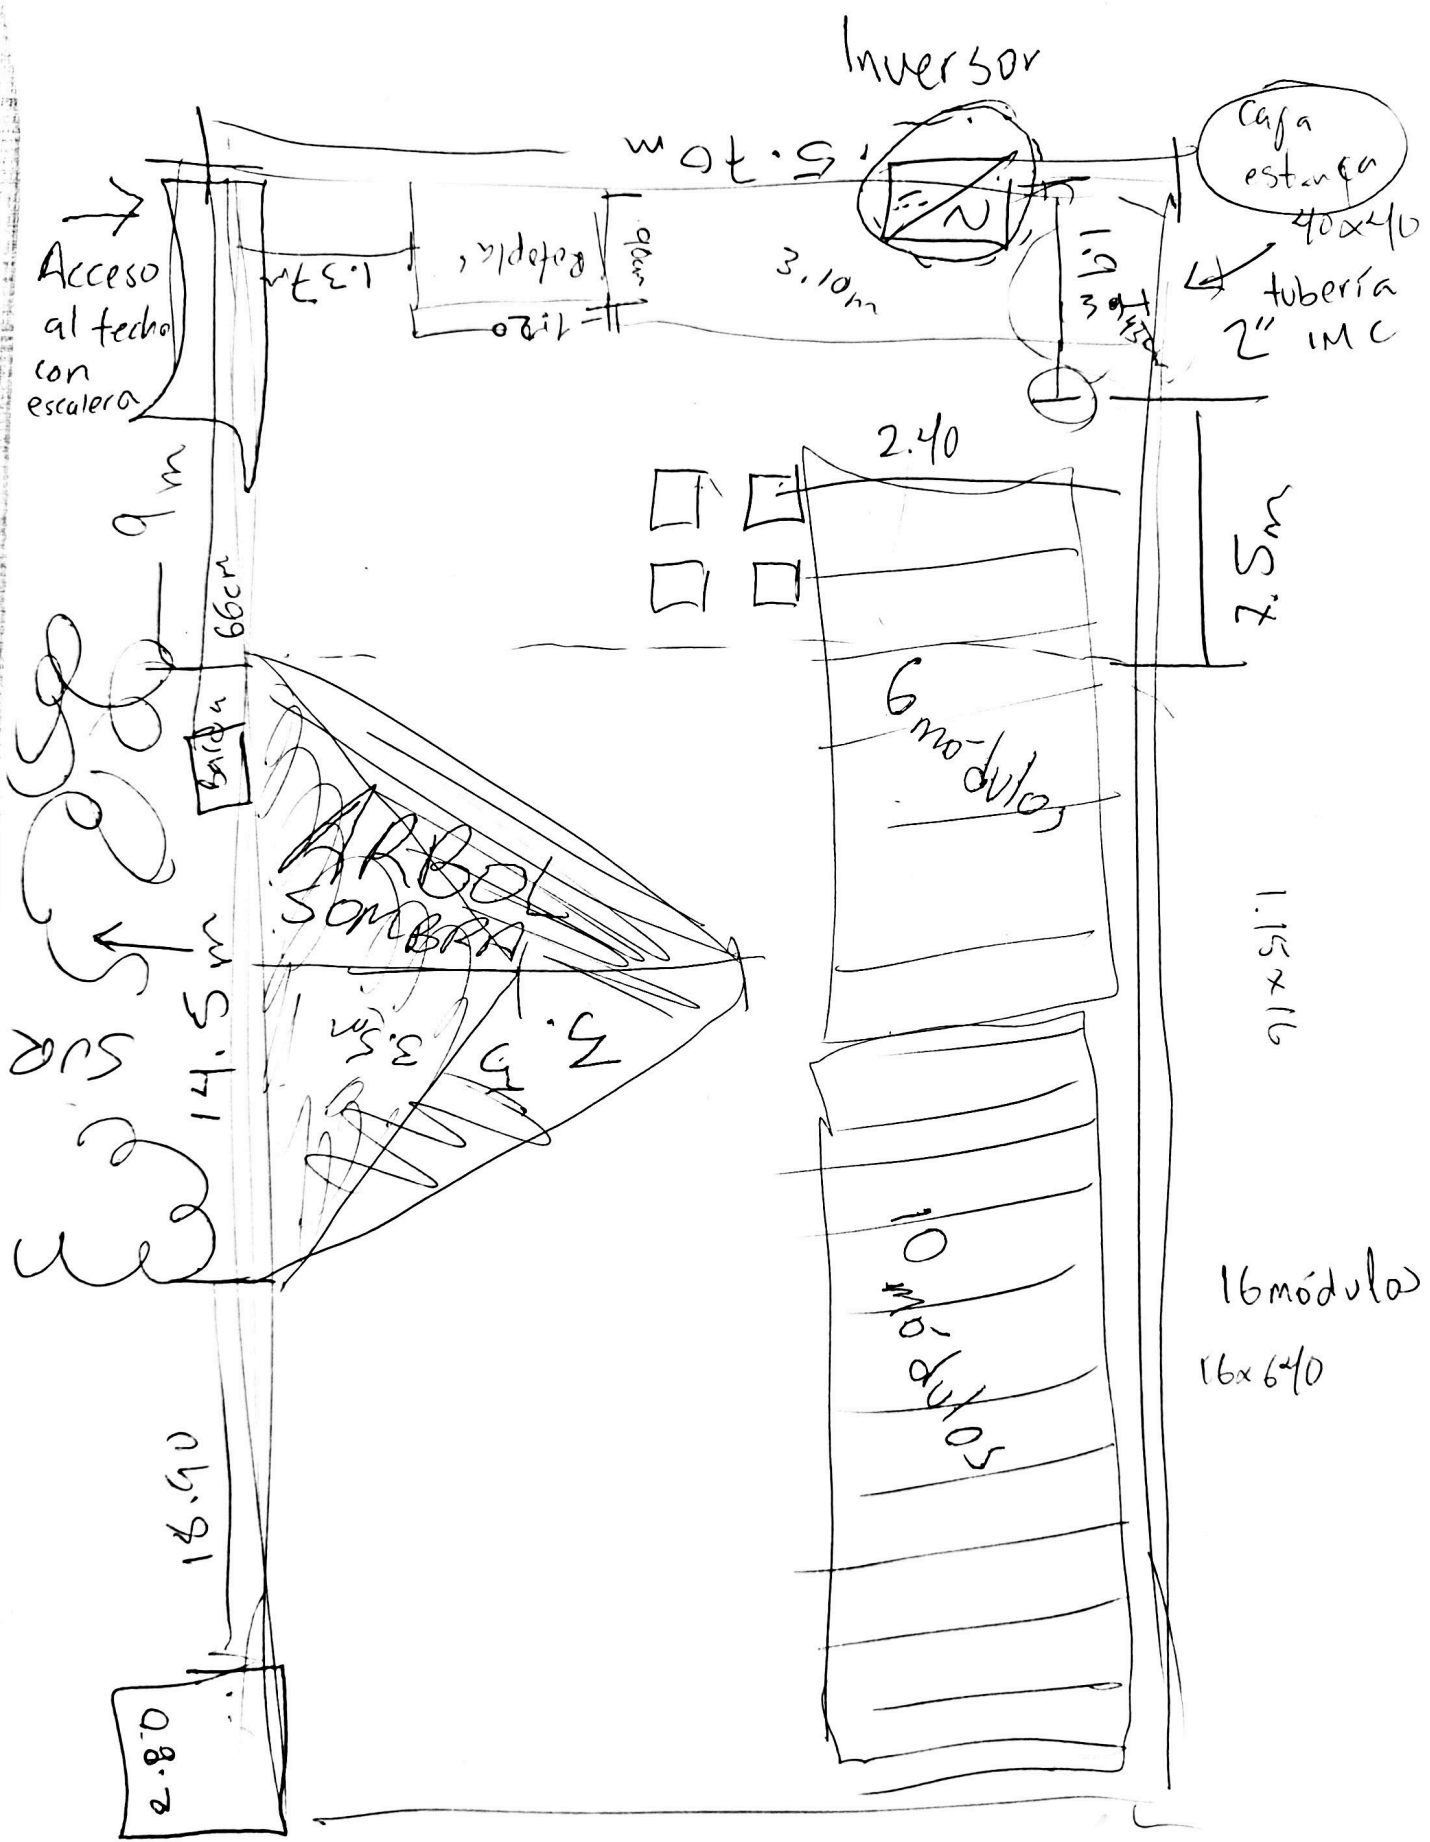 Inversor
5.70m
Caja
estanca
40x40
tubería
2" IMC
Acceso
al techo
con
escalera
1.37m
Rotoplas
90cm
=1.20
3.10m
1.93
2.40
7.5m
9m
66cm
Bajan
6 módulos
ARBOL
SOMBRA
3.5m
14.5m
SUR
1.15x16
10 módulos
16 módulos
16x640
18.90